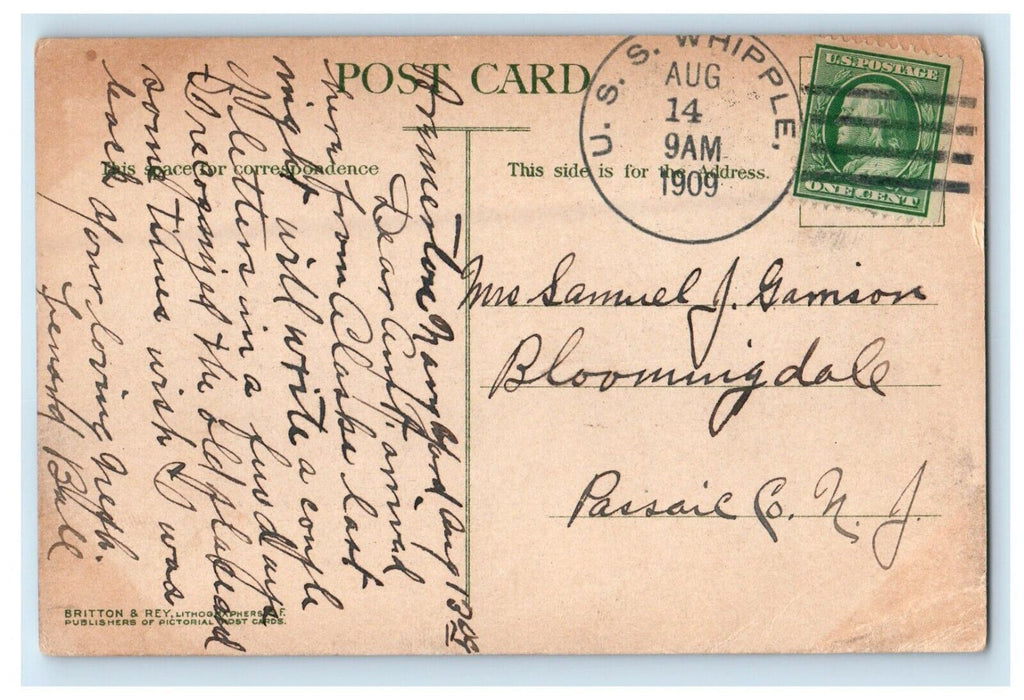 POST CARD
This space for correspondence
This side is for the Address.
U. S. S. WHIPPLE.
AUG
14
9AM
1909
U.S. POSTAGE
ONE CENT
Mrs Samuel J. Garrison
Bloomingdale
Passaic Co. N. J.
Bremerton Navy Yard Aug 13 09
Dear Aunt, arrived
here from Alaska last
night will write a couple
of letters in a few days
I recognized the old place and
some times wish I was
back your loving neph.
Lenord Ball
BRITTON & REY, LITHOGRAPHERS S.F.
PUBLISHERS OF PICTORIAL POST CARDS.